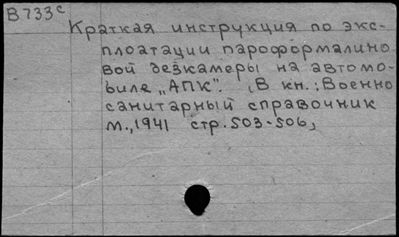 В 733с
Краткая инструкция по экс-
плоатации пароформалино
вой дезкамеры на автомо-
биле „АПК". В кн.: Военно
санитарный справочник
М., 1941 стр. 503-506,